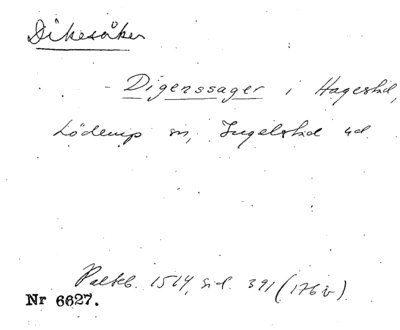 Dikesåker
- Digenssager i Hagestad,
Löderup sn, Ingelstad hd.
Palteb. 1514, sid. 391 (176 v).
Nr 6627.